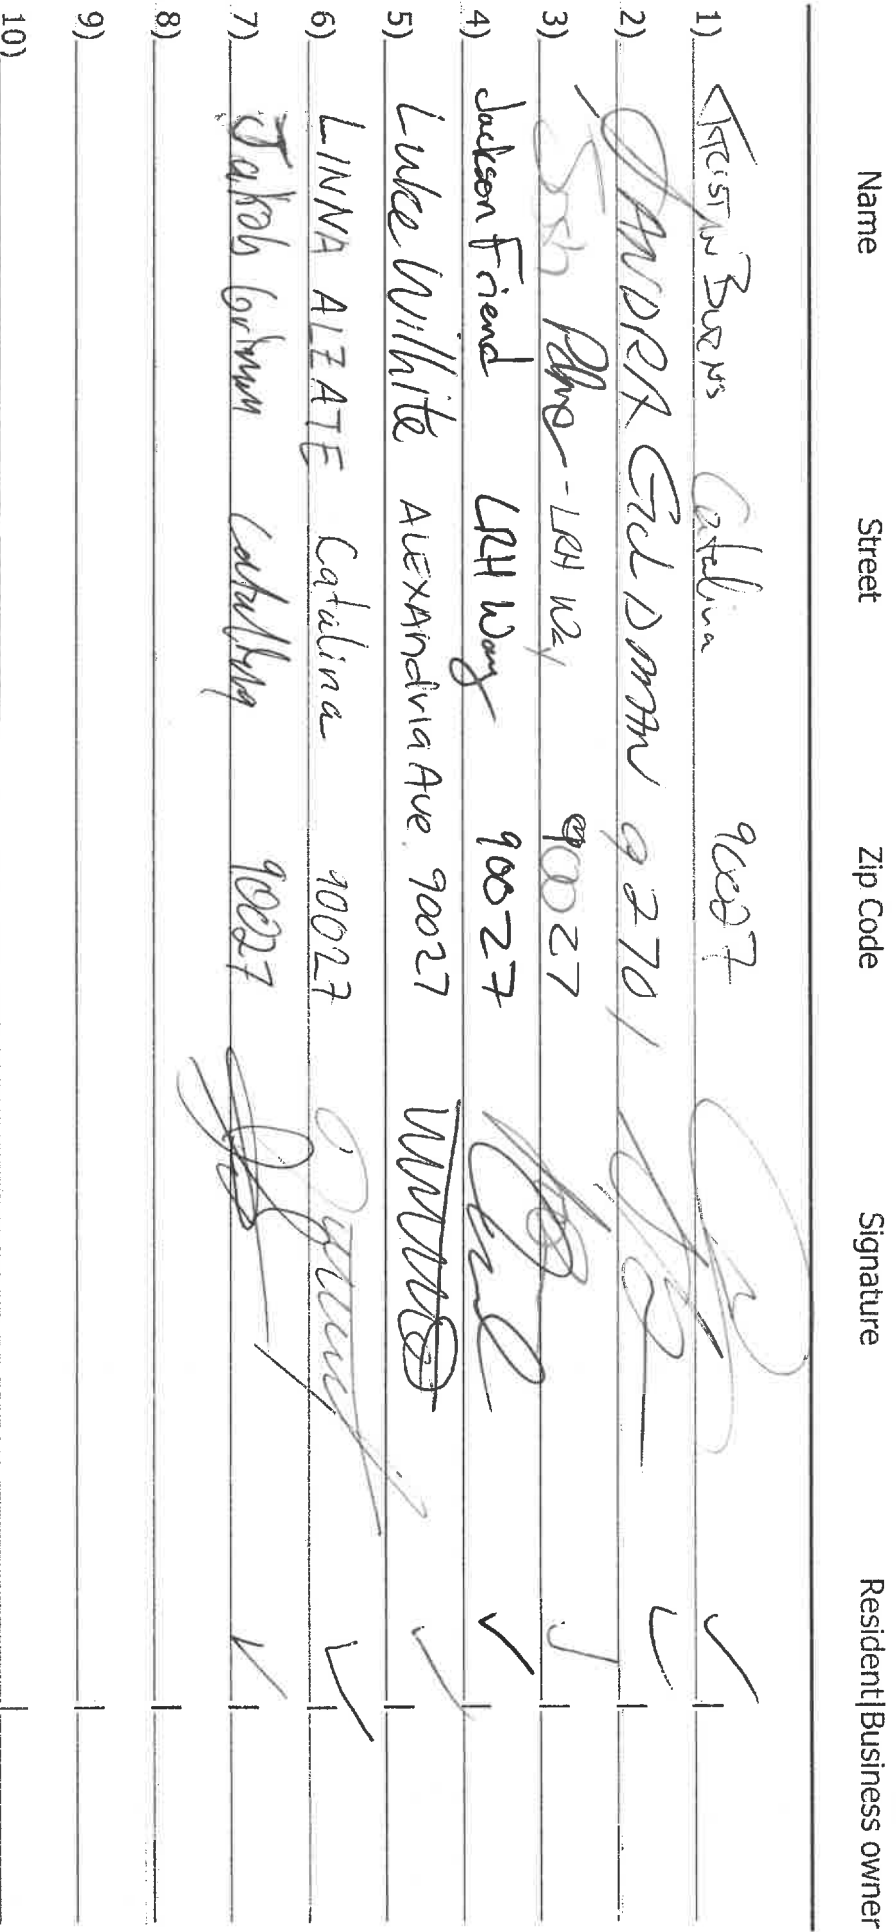 Name Street Zip Code Signature Resident|Business owner
1) TRISTIN BURNS Catalina 90027 ✓
2) SANDRA GOLDMAN 92701 ✓
3) Josh - LRH Way 90027 ✓
4) Jackson Friend LRH Way 90027 ✓
5) Luke Wilhite ALEXAndria Ave. 90027 ✓
6) LINNA ALZATE Catalina 90027 ✓
7) Jakob Grimm 90027 ✓
8)
9)
10)